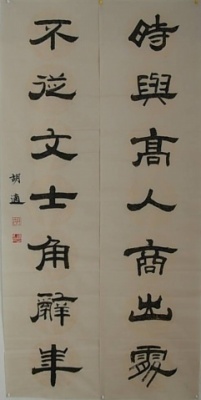 時與髙人商出處
不從文士角辭
胡適